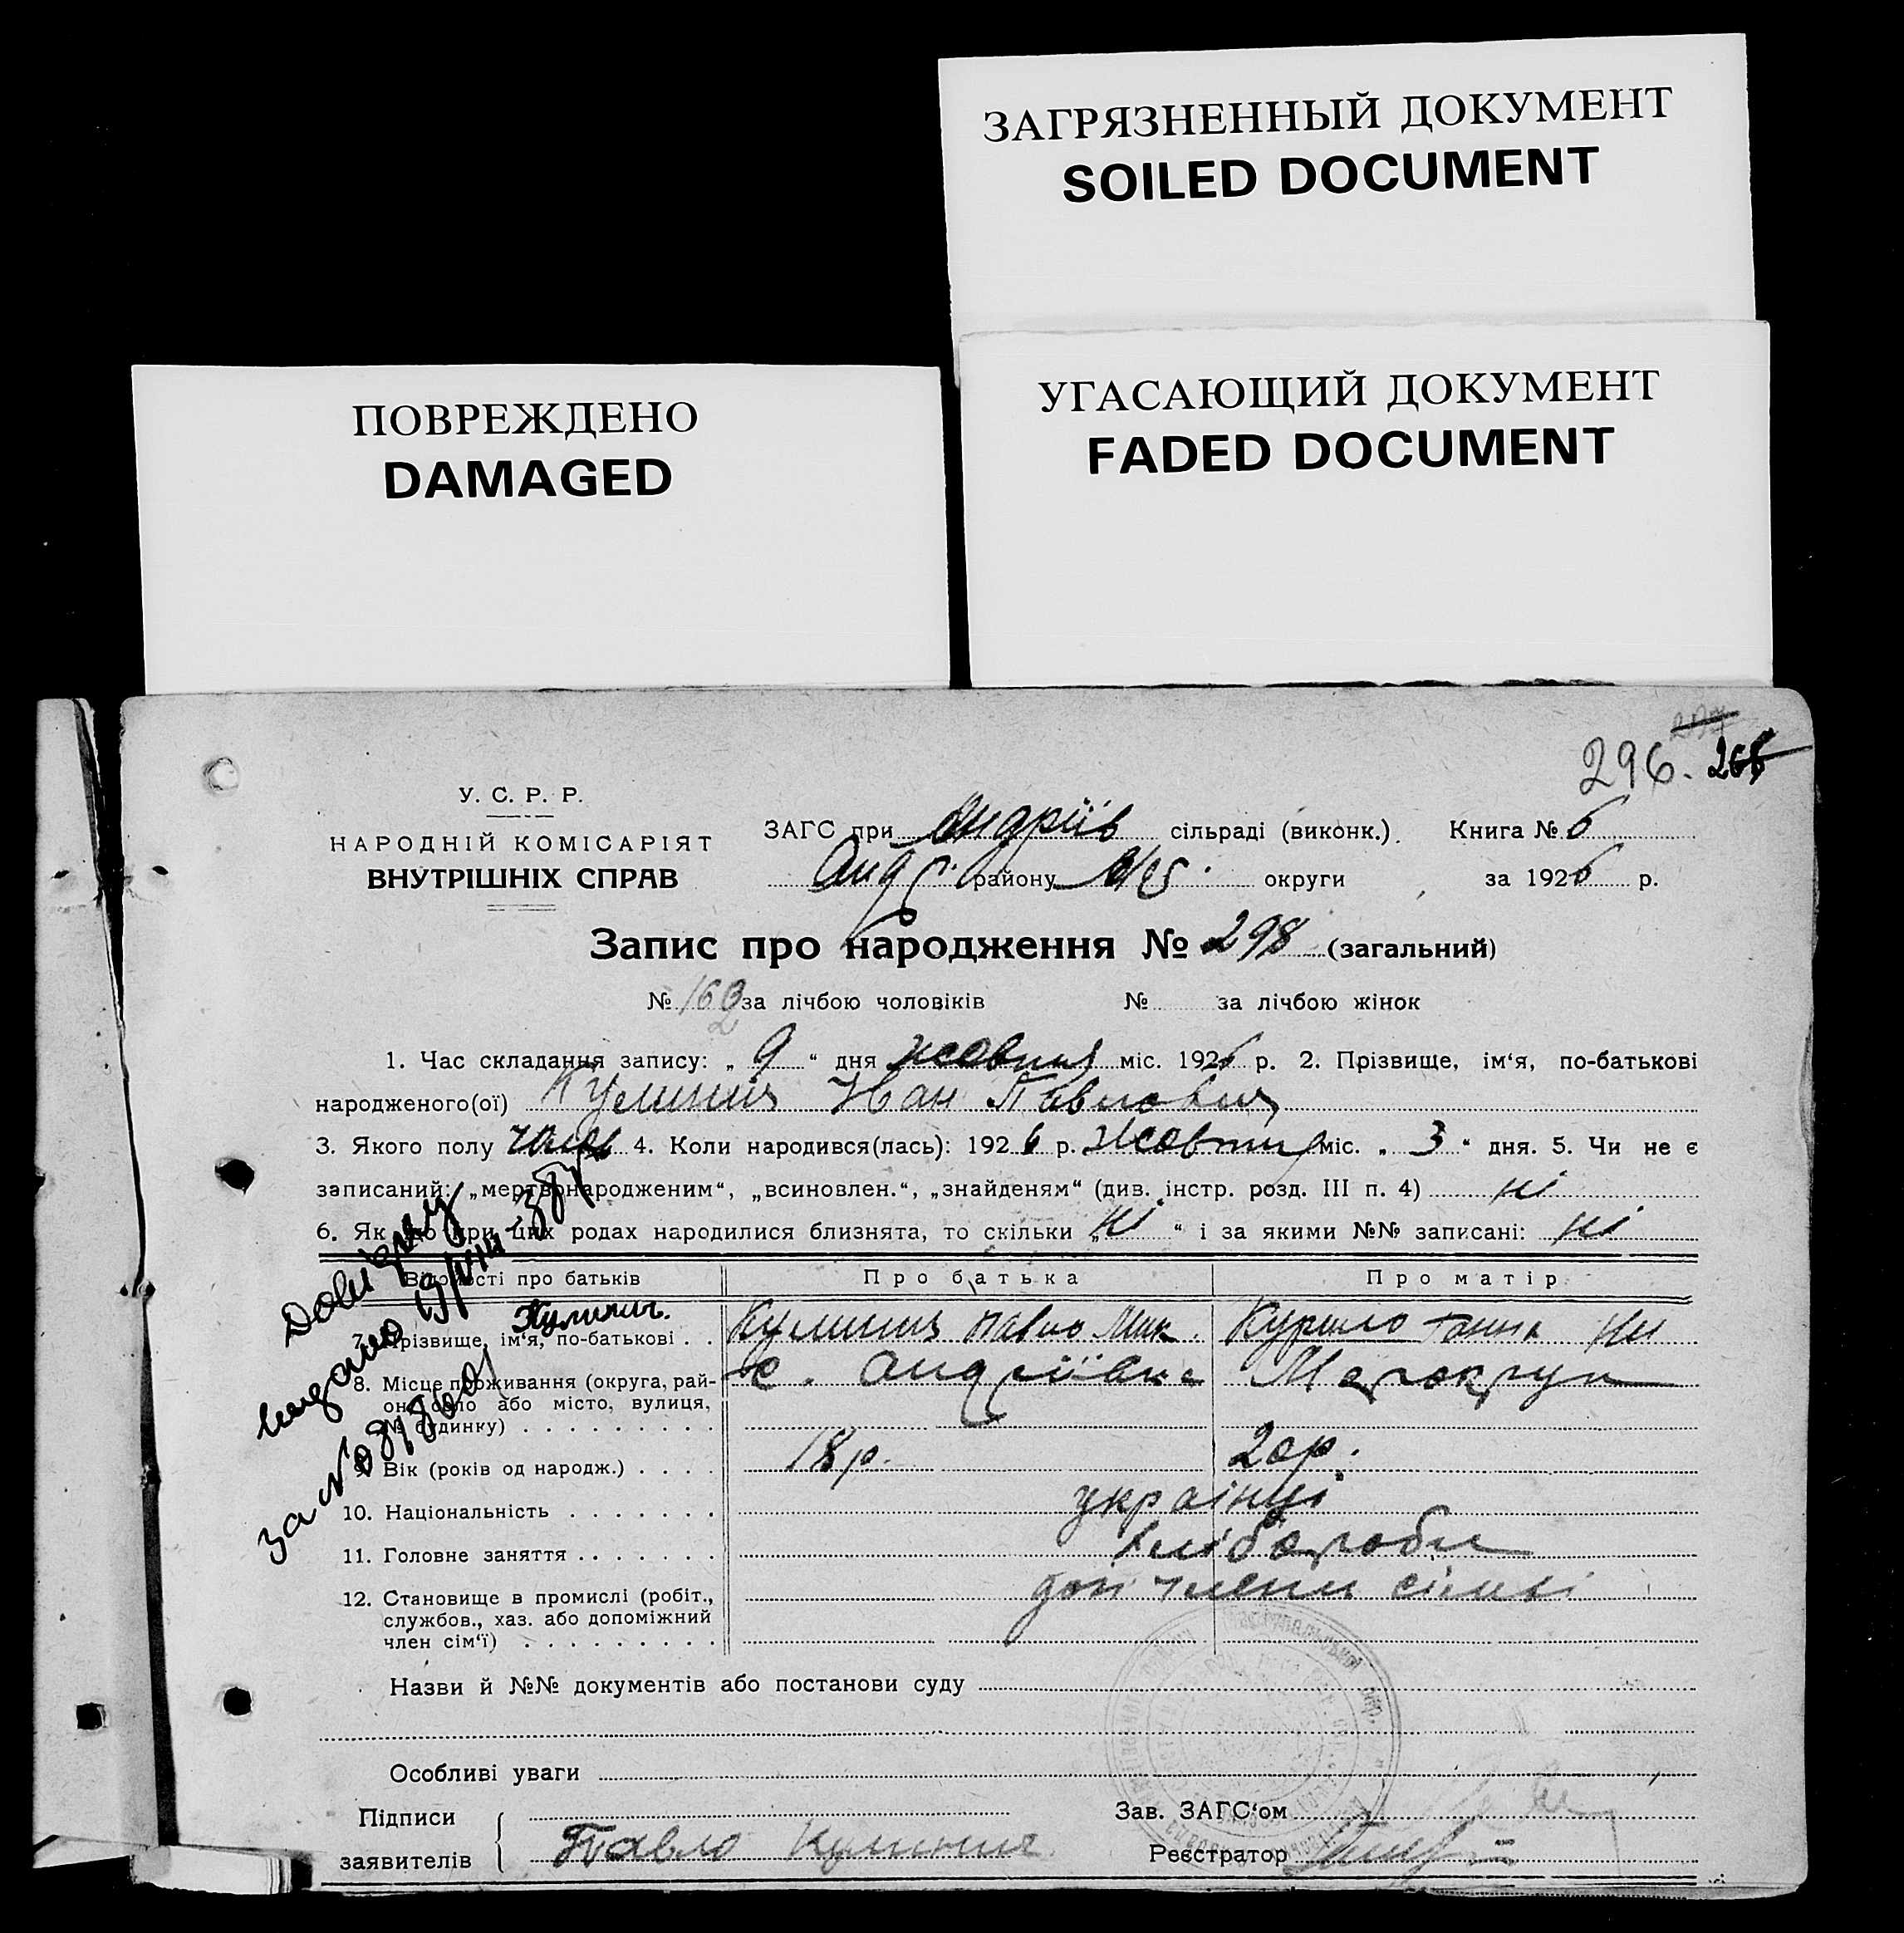 ЗАГРЯЗНЕННЫЙ ДОКУМЕНТ
SOILED DOCUMENT
УГАСАЮЩИЙ ДОКУМЕНТ
FADED DOCUMENT
ПОВРЕЖДЕНО
DAMAGED
296. 266
У. С. Р. Р.
НАРОДНІЙ КОМІСАРІЯТ
ВНУТРІШНІХ СПРАВ
ЗАГС при Андріїв сільраді (виконк.). Книга № 6
Андр. району округи за 1926 р.
Запис про народження № 298 (загальний)
№ 162 за лічбою чоловіків № за лічбою жінок
1. Час складання запису: „ 9 “ дня жовтня міс. 1926 р. 2. Прізвище, ім‘я, по-батькові
народженого(ої) Кулинич Іван Павлович
3. Якого полу чолов 4. Коли народився(лась): 1926 р. жовтня міс. „ 3 “ дня. 5. Чи не є
записаний: „мертвонародженим“, „всиновлен.“, „знайденям“ (див. інстр. розд. III п. 4) ні
6. Як що при цих родах народилися близнята, то скільки „ ні “ і за якими №№ записані: ні
Відомості про батьків Про батька Про матір
Кулинич.
7. Прізвище, ім‘я, по-батькові . . Кулинич Павло Мик. Курило Ганна
8. Місце проживання (округа, рай-
он, село або місто, вулиця,
№ будинку) . . . . . . . . . с. Андріївка
9. Вік (років од народж.) . . . . 18 р. 20 р.
10. Національність . . . . . . . українці
11. Головне заняття . . . . . . . хлібороби
12. Становище в промислі (робіт.,
службов., хаз. або допоміжний
член сім‘ї) . . . . . . . . . доп члени сімьі
Довідку
видано 19/VIII 38р
за №
Назви й №№ документів або постанови суду
Особливі уваги
Підписи
заявителів Павло Кулинич
Зав. ЗАГС‘ом
Реєстратор